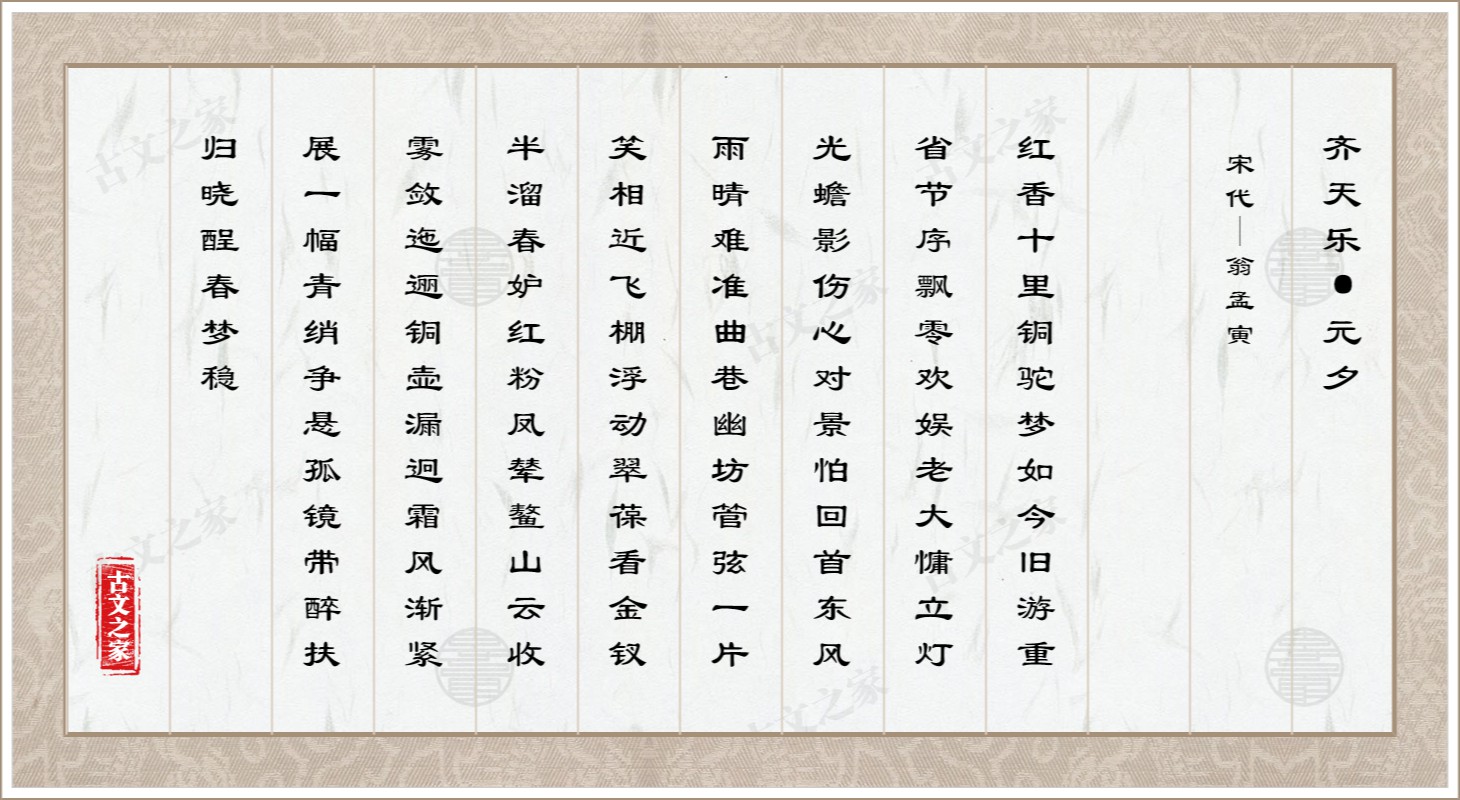 齐天乐●元夕
宋代—翁孟寅
红香十里铜驼梦如今旧游重
省节序飘零欢娱老大慵立灯
光蟾影伤心对景怕回首东风
雨晴难准曲巷幽坊管弦一片
笑相近飞棚浮动翠葆看金钗
半溜春妒红粉凤辇鳌山云收
雾敛迤逦铜壶漏迥霜风渐紧
展一幅青绡争悬孤镜带醉扶
归晓酲春梦稳
古文之家